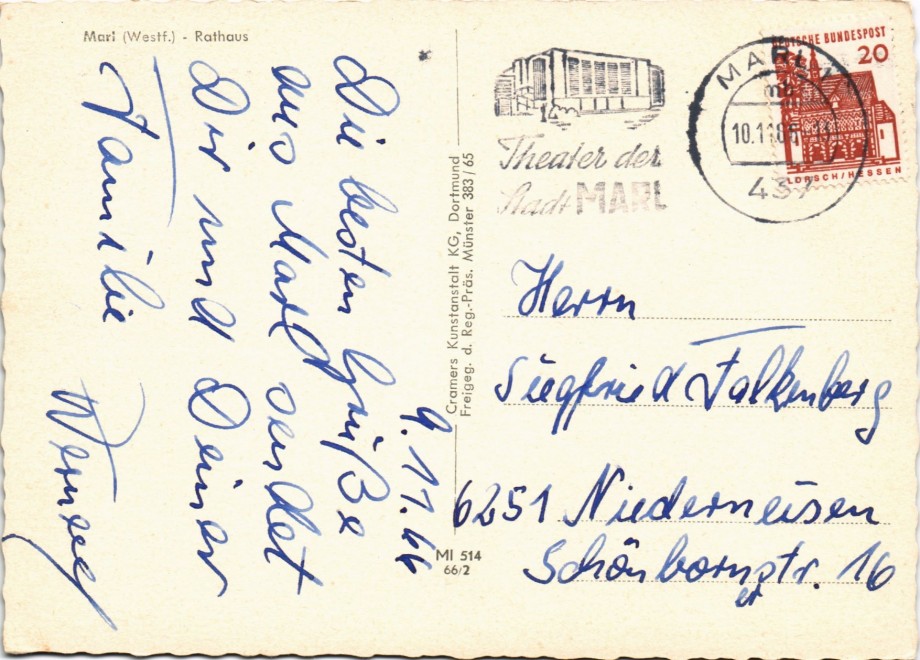 Marl (Westf.) - Rathaus
9.11.66
Die besten Grüße
aus Marl sendet
Dir und Deiner
Familie
Cramers Kunstanstalt KG, Dortmund
Freigeg. d. Reg.-Präs. Münster 383/65
MI 514
66/2
Theater der
Stadt MARL
MARL
10.11.66
437
DEUTSCHE BUNDESPOST
20
LORSCH/HESSEN
Herrn
Siegfried Falkenberg
6251 Niederneisen
Schönbornstr. 16
er